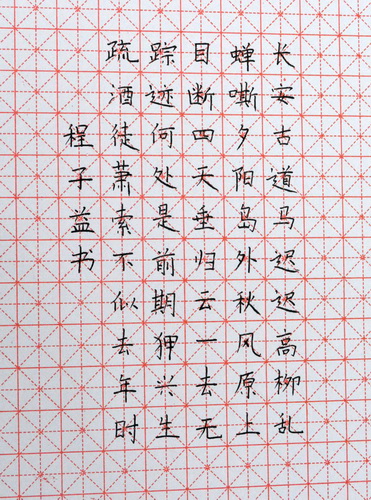 长安古道马迟迟高柳乱
蝉嘶夕阳岛外秋风原上
目断四天垂归云一去无
踪迹何处是前期狎兴生
疏酒徒萧索不似去年时
程子益书